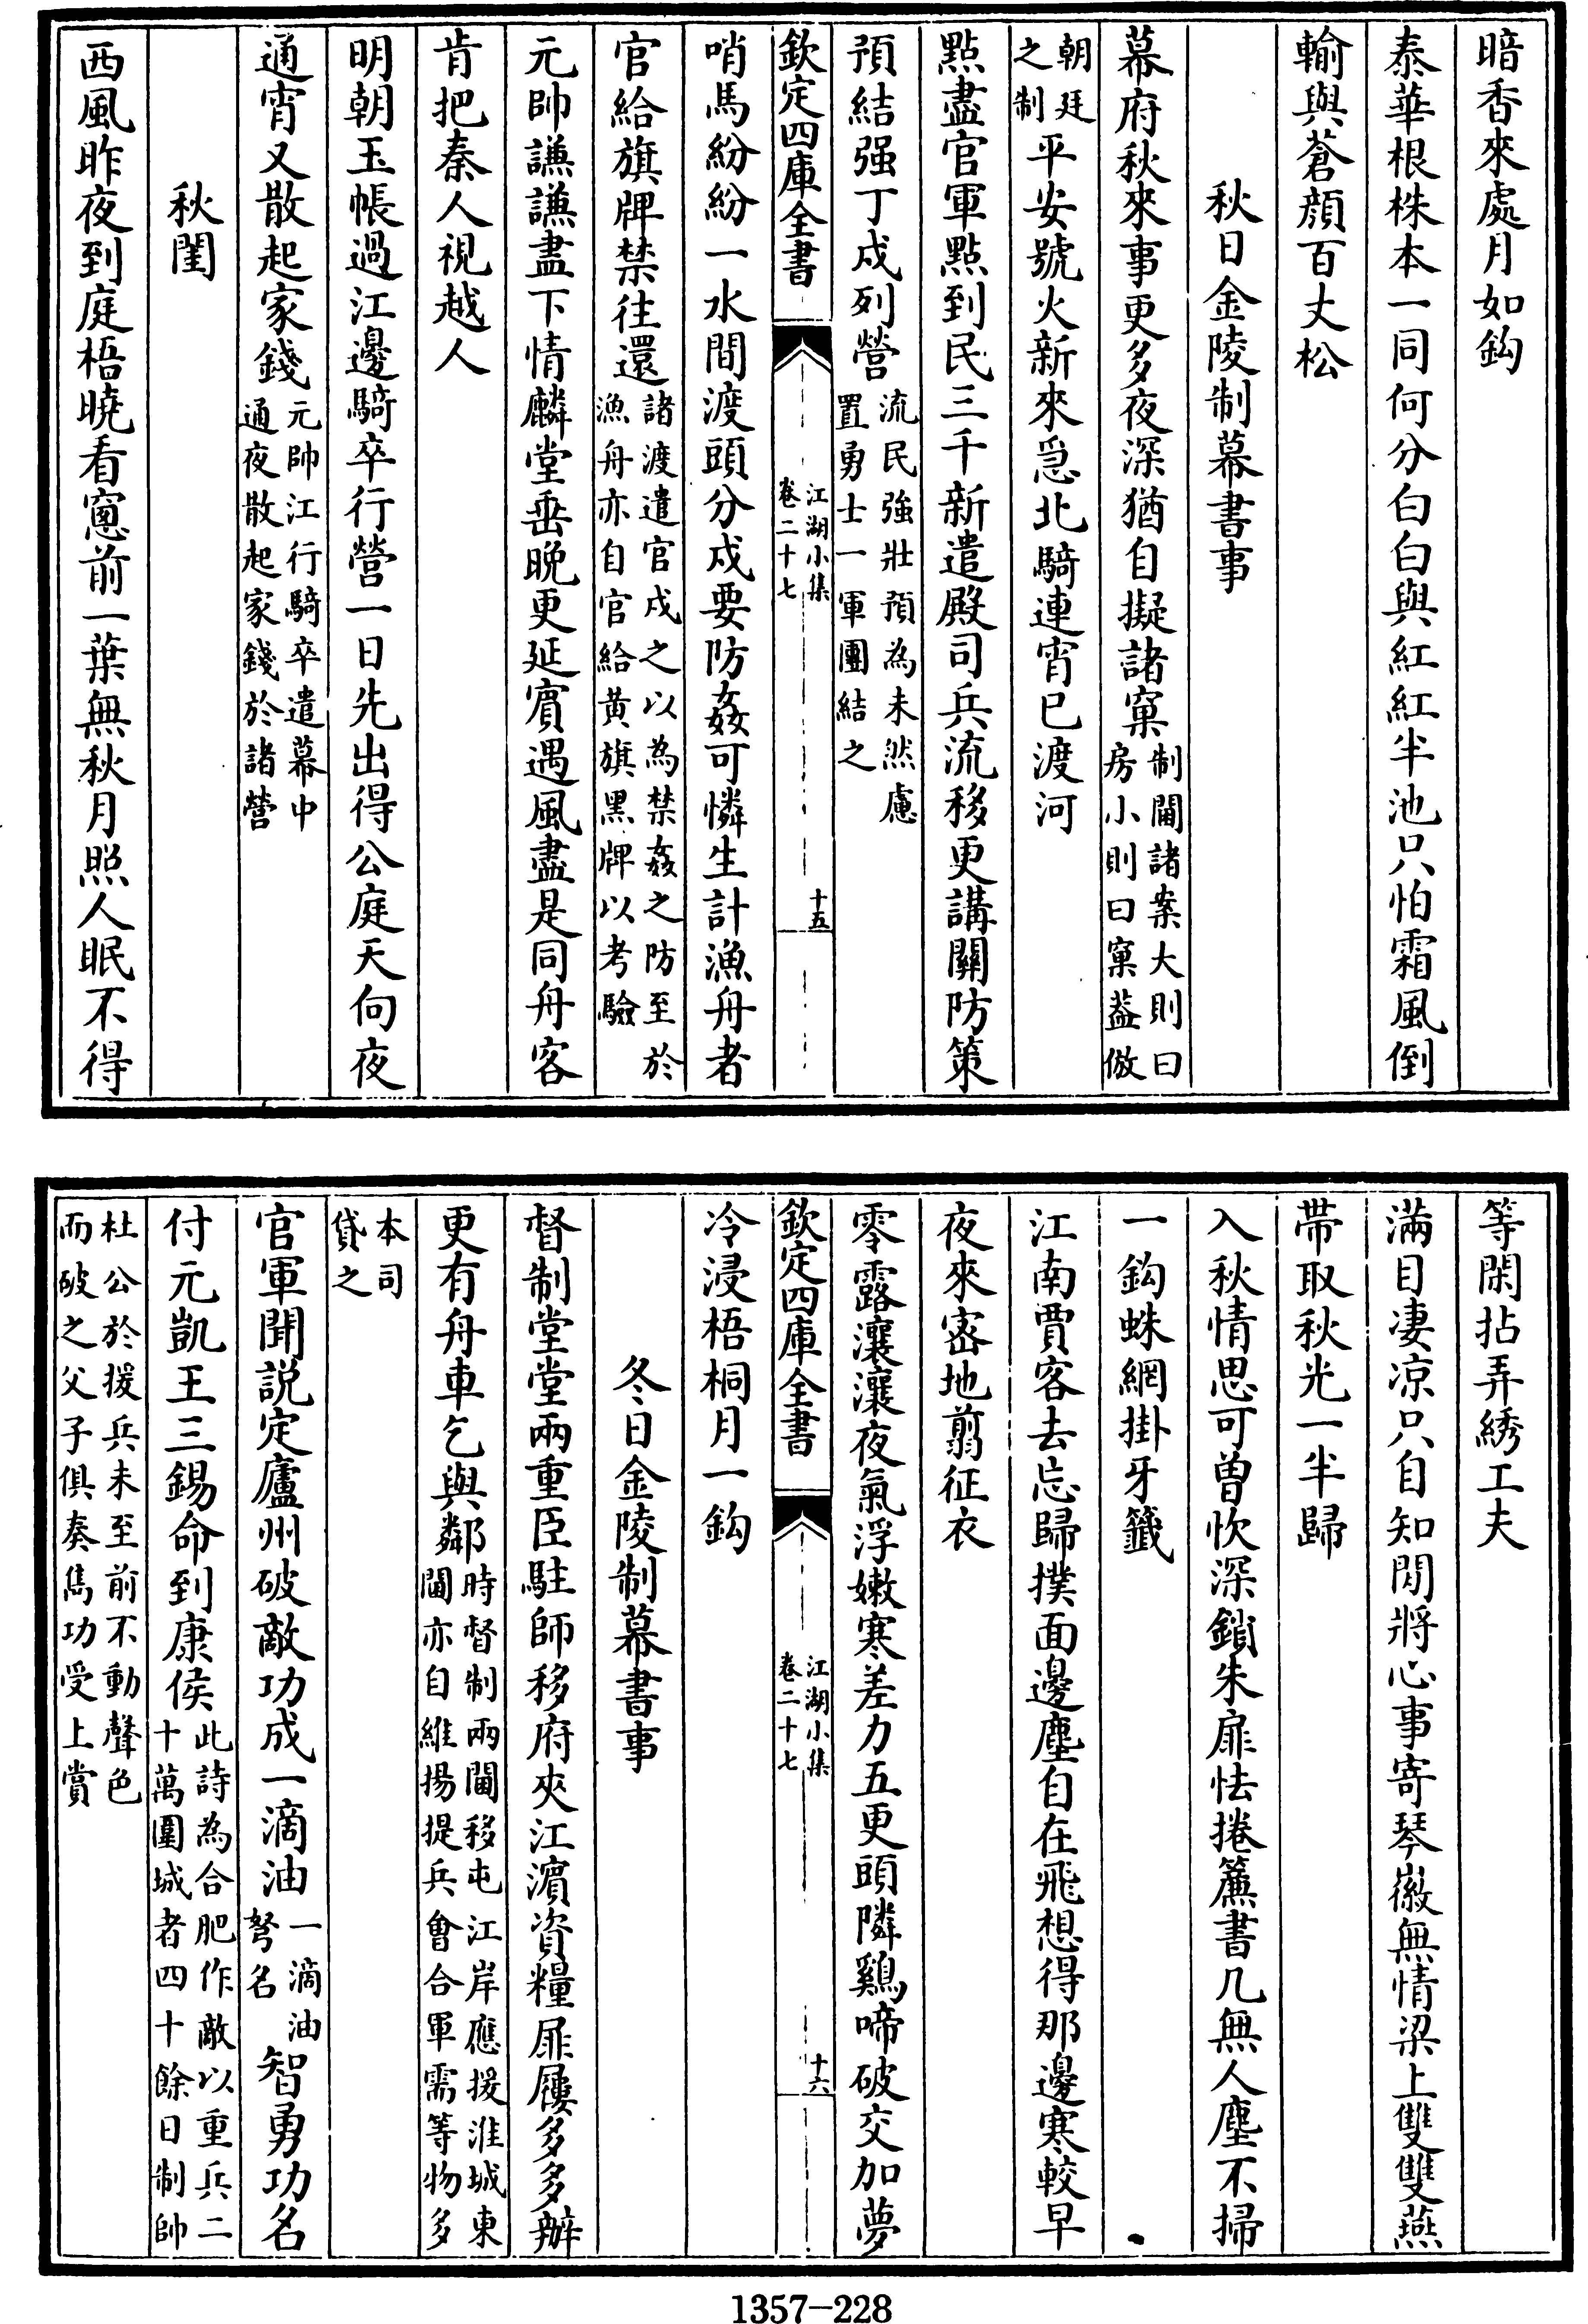 暗香來處月如鈎
泰華根株本一同何分白白與紅紅半池只怕霜風倒
輸與蒼顔百丈松
秋日金陵制幕書事
幕府秋來事更多夜深猶自擬諸窠制閫諸案大則曰房小則曰窠葢倣
朝廷之制平安號火新來急北騎連宵已渡河
點盡官軍點到民三千新遣殿司兵流移更講關防策
預結强丁戍列營流民強壯預為未然慮置勇士一軍團結之
欽定四庫全書
江湖小集
卷二十七
十五
哨馬紛紛一水間渡頭分戍要防姦可憐生計漁舟者
官給旗牌禁往還諸渡遣官戍之以為禁姦之防至於漁舟亦自官給黄旗黑牌以考驗
元帥謙謙盡下情麟堂垂晚更延賔遇風盡是同舟客
肯把秦人視越人
明朝玉帳過江邊騎卒行營一日先出得公庭天向夜
通宵又散起家錢元帥江行騎卒遣幕中通夜散起家錢於諸營
秋閨
西風昨夜到庭梧曉看窻前一葉無秋月照人眠不得
等閑拈弄綉工夫
滿目凄凉只自知閒將心事寄琴徽無情梁上雙雙燕
帶取秋光一半歸
入秋情思可曽忺深鎖朱扉怯捲簾書几無人塵不掃
一鈎蛛網掛牙籤
江南賈客去忘歸撲面邊塵自在飛想得那邊寒較早
夜來密地翦征衣
零露瀼瀼夜氣浮嫩寒差力五更頭隣鷄啼破交加夢
欽定四庫全書
江湖小集
卷二十七
十六
冷浸梧桐月一鈎
冬日金陵制幕書事
督制堂堂兩重臣駐師移府夾江濵資糧扉屨多多辦
更有舟車乞與鄰時督制兩閫移屯江岸應援淮城東閫亦自維揚提兵會合軍需等物多
本司貸之
官軍聞説定廬州破敵功成一滴油一滴油弩名智勇功名
付元凱王三錫命到康侯此詩為合肥作敵以重兵二十萬圍城者四十餘日制帥
杜公於援兵未至前不動聲色而破之父子俱奏雋功受上賞
1357-228